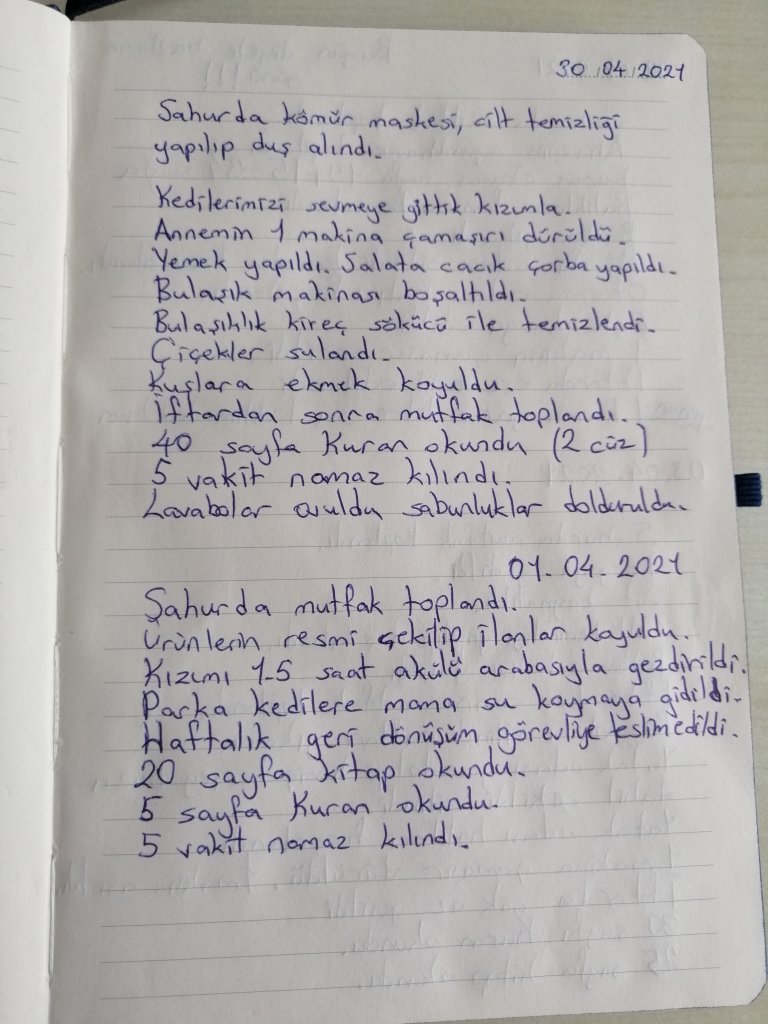 30.04.2021
Sahurda kömür maskesi, cilt temizliği
yapılıp duş alındı.
Kedilerimizi sevmeye gittik kızımla.
Annemin 1 makina çamaşırı dürüldü.
Yemek yapıldı. Salata cacık çorba yapıldı.
Bulaşık makinası boşaltıldı.
Bulaşıklık kireç sökücü ile temizlendi.
Çiçekler sulandı.
Kuşlara ekmek koyuldu.
İftardan sonra mutfak toplandı.
40 sayfa Kuran okundu (2 cüz)
5 vakit namaz kılındı.
Lavabolar ovuldu sabunluklar dolduruldu.
01.04.2021
Şahurda mutfak toplandı.
Ürünlerin resmi çekilip ilanlar koyuldu.
Kızımı 1.5 saat akülü arabasıyla gezdirildi.
Parka kedilere mama su koymaya gidildi.
Haftalık geri dönüşüm görevliye teslim edildi.
20 sayfa kitap okundu.
5 sayfa Kuran okundu.
5 vakit namaz kılındı.